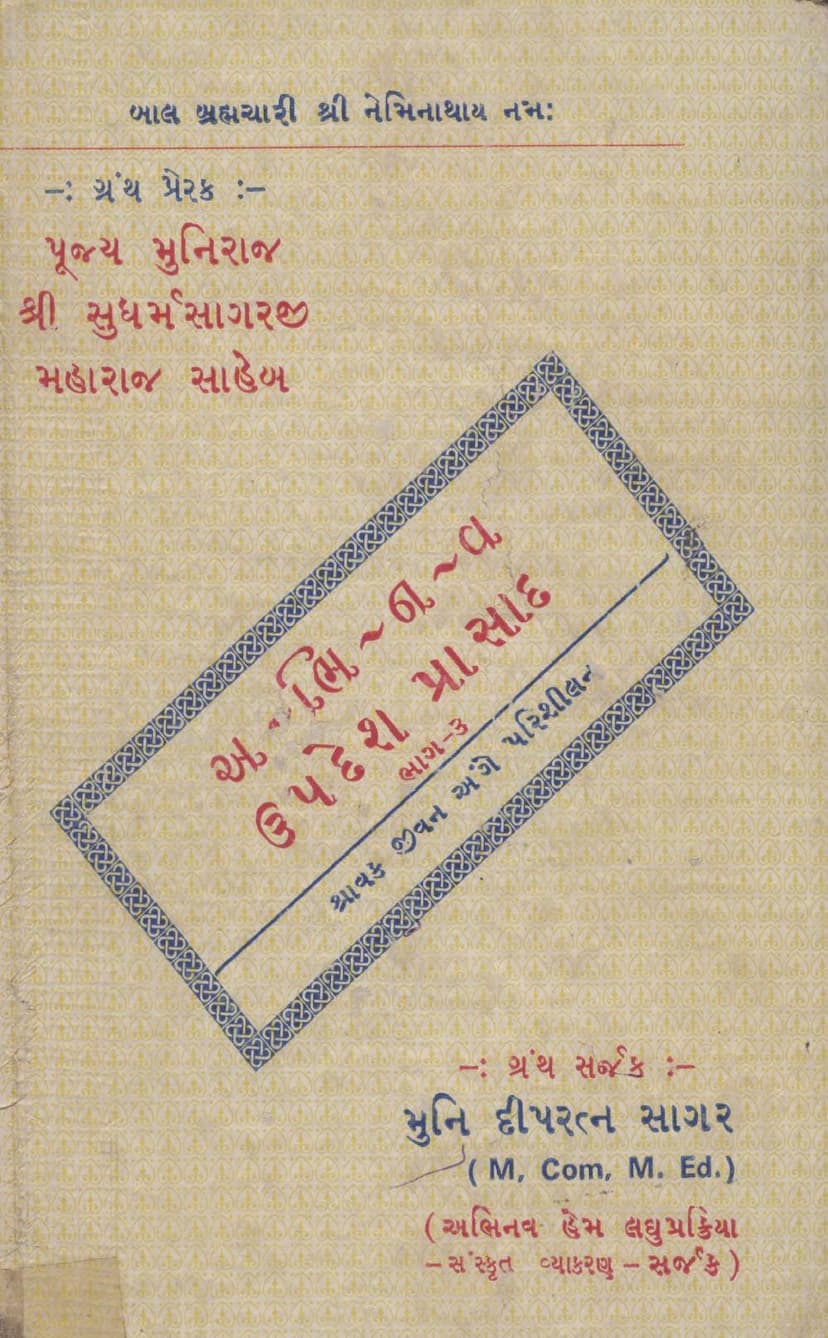 બાલ બ્રહ્મચારી શ્રી નેમિનાથાય નમઃ
-: ગ્રંથ પ્રેરક :-
પૂજ્ય મુનિરાજ
શ્રી સુધર્મસાગરજી
મહારાજ સાહેબ
અ-ભિ-ન-વ
ઉપદેશ પ્રાસાદ
ભાગ-૩
શ્રાવક જીવન અંગે પરિશીલન
-: ગ્રંથ સર્જક :-
મુનિ દીપરત્ન સાગર
( M, Com, M. Ed.)
(અભિનવ હેમ લઘુપ્રક્રિયા
-સંસ્કૃત વ્યાકરણ - સર્જક)